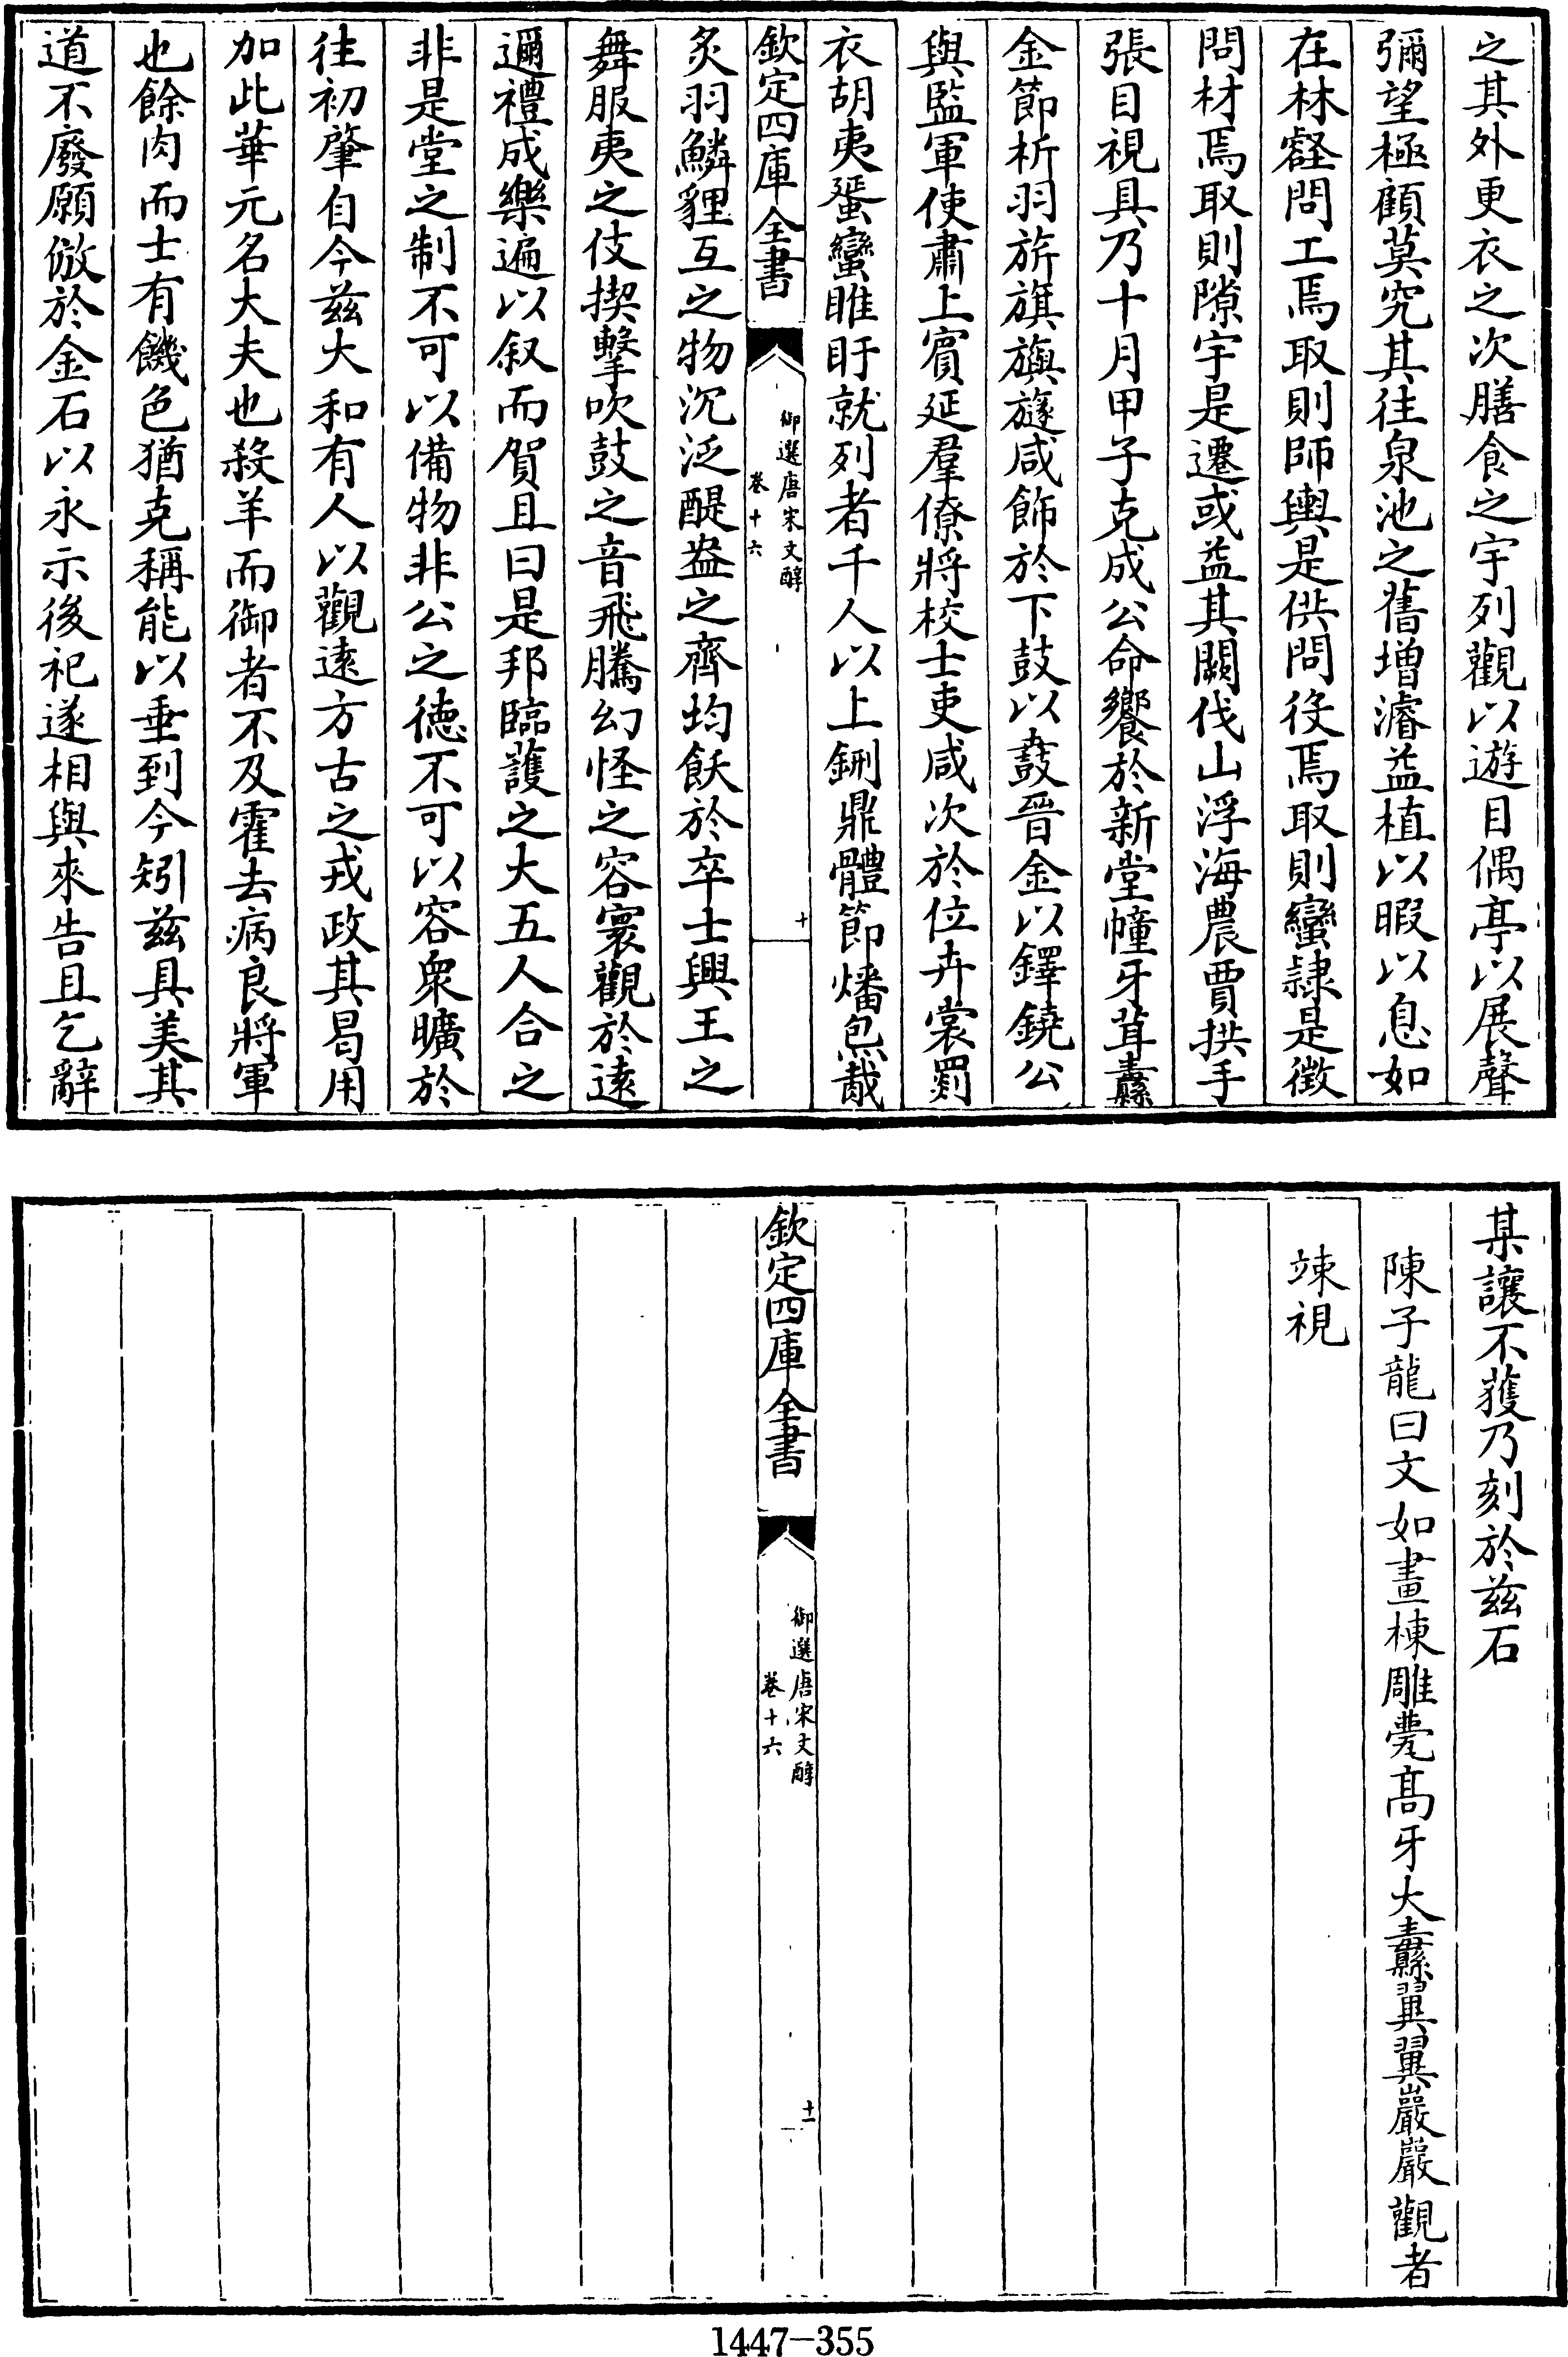 之其外更衣之次膳食之宇列觀以遊目偶亭以展聲
彌望極顧莫究其往泉池之舊增濬益植以暇以息如
在林壑問工焉取則師輿是供問役焉取則蠻隸是徵
問材焉取則隙宇是遷或益其闕伐山浮海農賈拱手
張目視具乃十月甲子克成公命饗於新堂幢牙茸纛
金節析羽旂旗旟旞咸飾於下鼓以鼖晉金以鐸鐃公
與監軍使肅上賓延羣僚將校士吏咸次於位卉裳罽
衣胡夷蜑蠻睢盱就列者千人以上鉶鼎體節燔炰胾
欽定四庫全書
御選唐宋文醇
卷十六
十
炙羽鱗貍互之物沉泛醍盎之齊均飫於卒士興王之
舞服夷之伎揳擊吹鼓之音飛騰幻怪之容寰觀於遠
邇禮成樂遍以叙而賀且曰是邦臨護之大五人合之
非是堂之制不可以備物非公之德不可以容衆曠於
往初肇自今茲大和有人以觀遠方古之戎政其曷用
加此華元名大夫也殺羊而御者不及霍去病良將軍
也餘肉而士有饑色猶克稱能以垂到今矧茲具美其
道不廢願倣於金石以永示後祀遂相與來告且乞辭
某讓不獲乃刻於茲石
陳子龍曰文如畫棟雕甍高牙大纛翼翼巖巖觀者
竦視
欽定四庫全書
御選唐宋文醇
卷十六
十一
1447—355